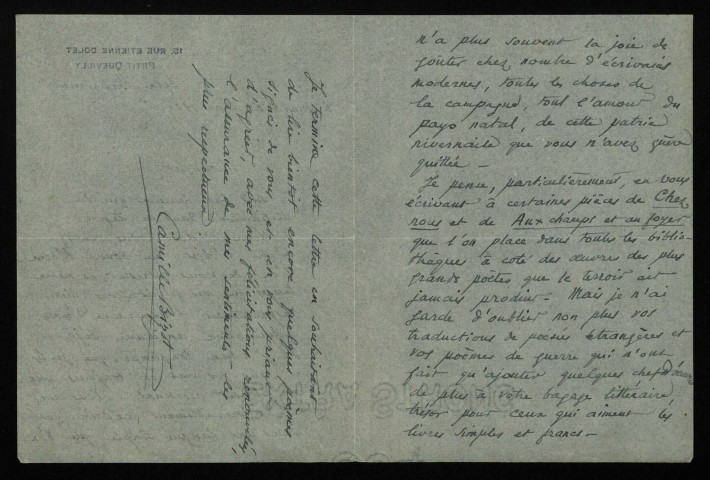 n'a plus souvent la joie de
goûter chez nombre d'écrivains
modernes, toutes les choses de
la campagne, tout l'amour du
pays natal, de cette patrie
nivernaise que vous n'avez guère
quittée —
Je pense, particulièrement, en vous
écrivant à certaines pièces de Chez
nous et de Aux champs et au foyer
que l'on place dans toutes les biblio-
thèques à côté des œuvres des plus
grands poètes que le terroir ait
jamais produit — Mais je n'ai
garde d'oublier non plus vos
traductions de poésies étrangères et
vos poèmes de guerre qui n'ont
fait qu'ajouter quelques chefs d'œuvre
de plus à votre bagage littéraire,
trésor pour ceux qui aiment les
livres simples et francs —
Je termine cette lettre en souhaitant
de lire bientôt encore quelques poèmes
signés de vous et en vous priant
d'agréer, avec mes félicitations renouvelées,
l'assurance de mes sentiments les
plus respectueux
Camille
15, RUE ETIENNE DOLET
PETIT QUEVILLY